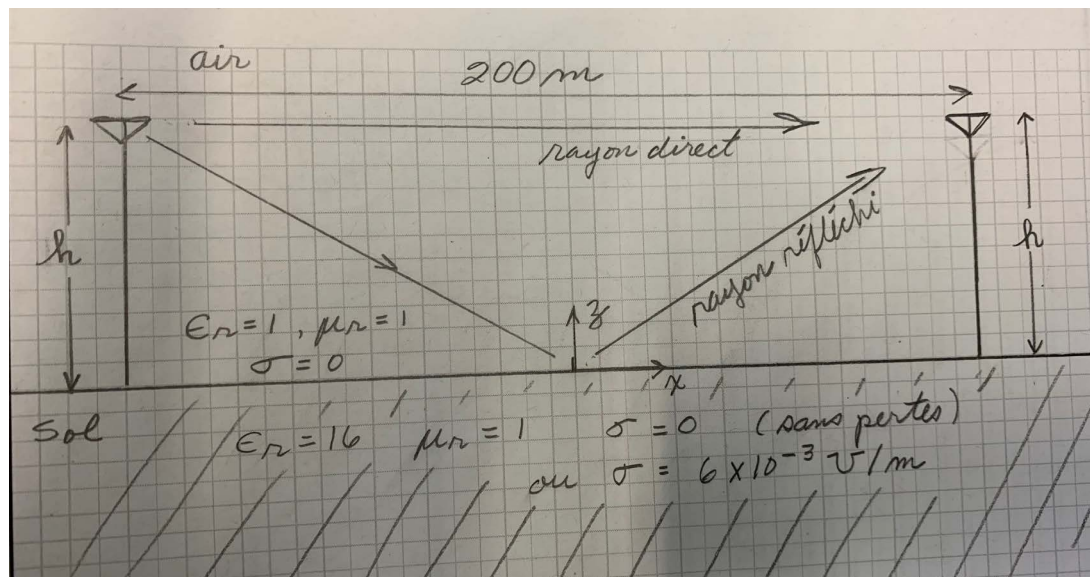 air
200 m
rayon direct
h
rayon réfléchi
h
z
ϵr = 1 , μr = 1
σ = 0
x
Sol
ϵr = 16 μr = 1 σ = 0 (sans pertes)
ou σ = 6 × 10⁻³ ℧/m